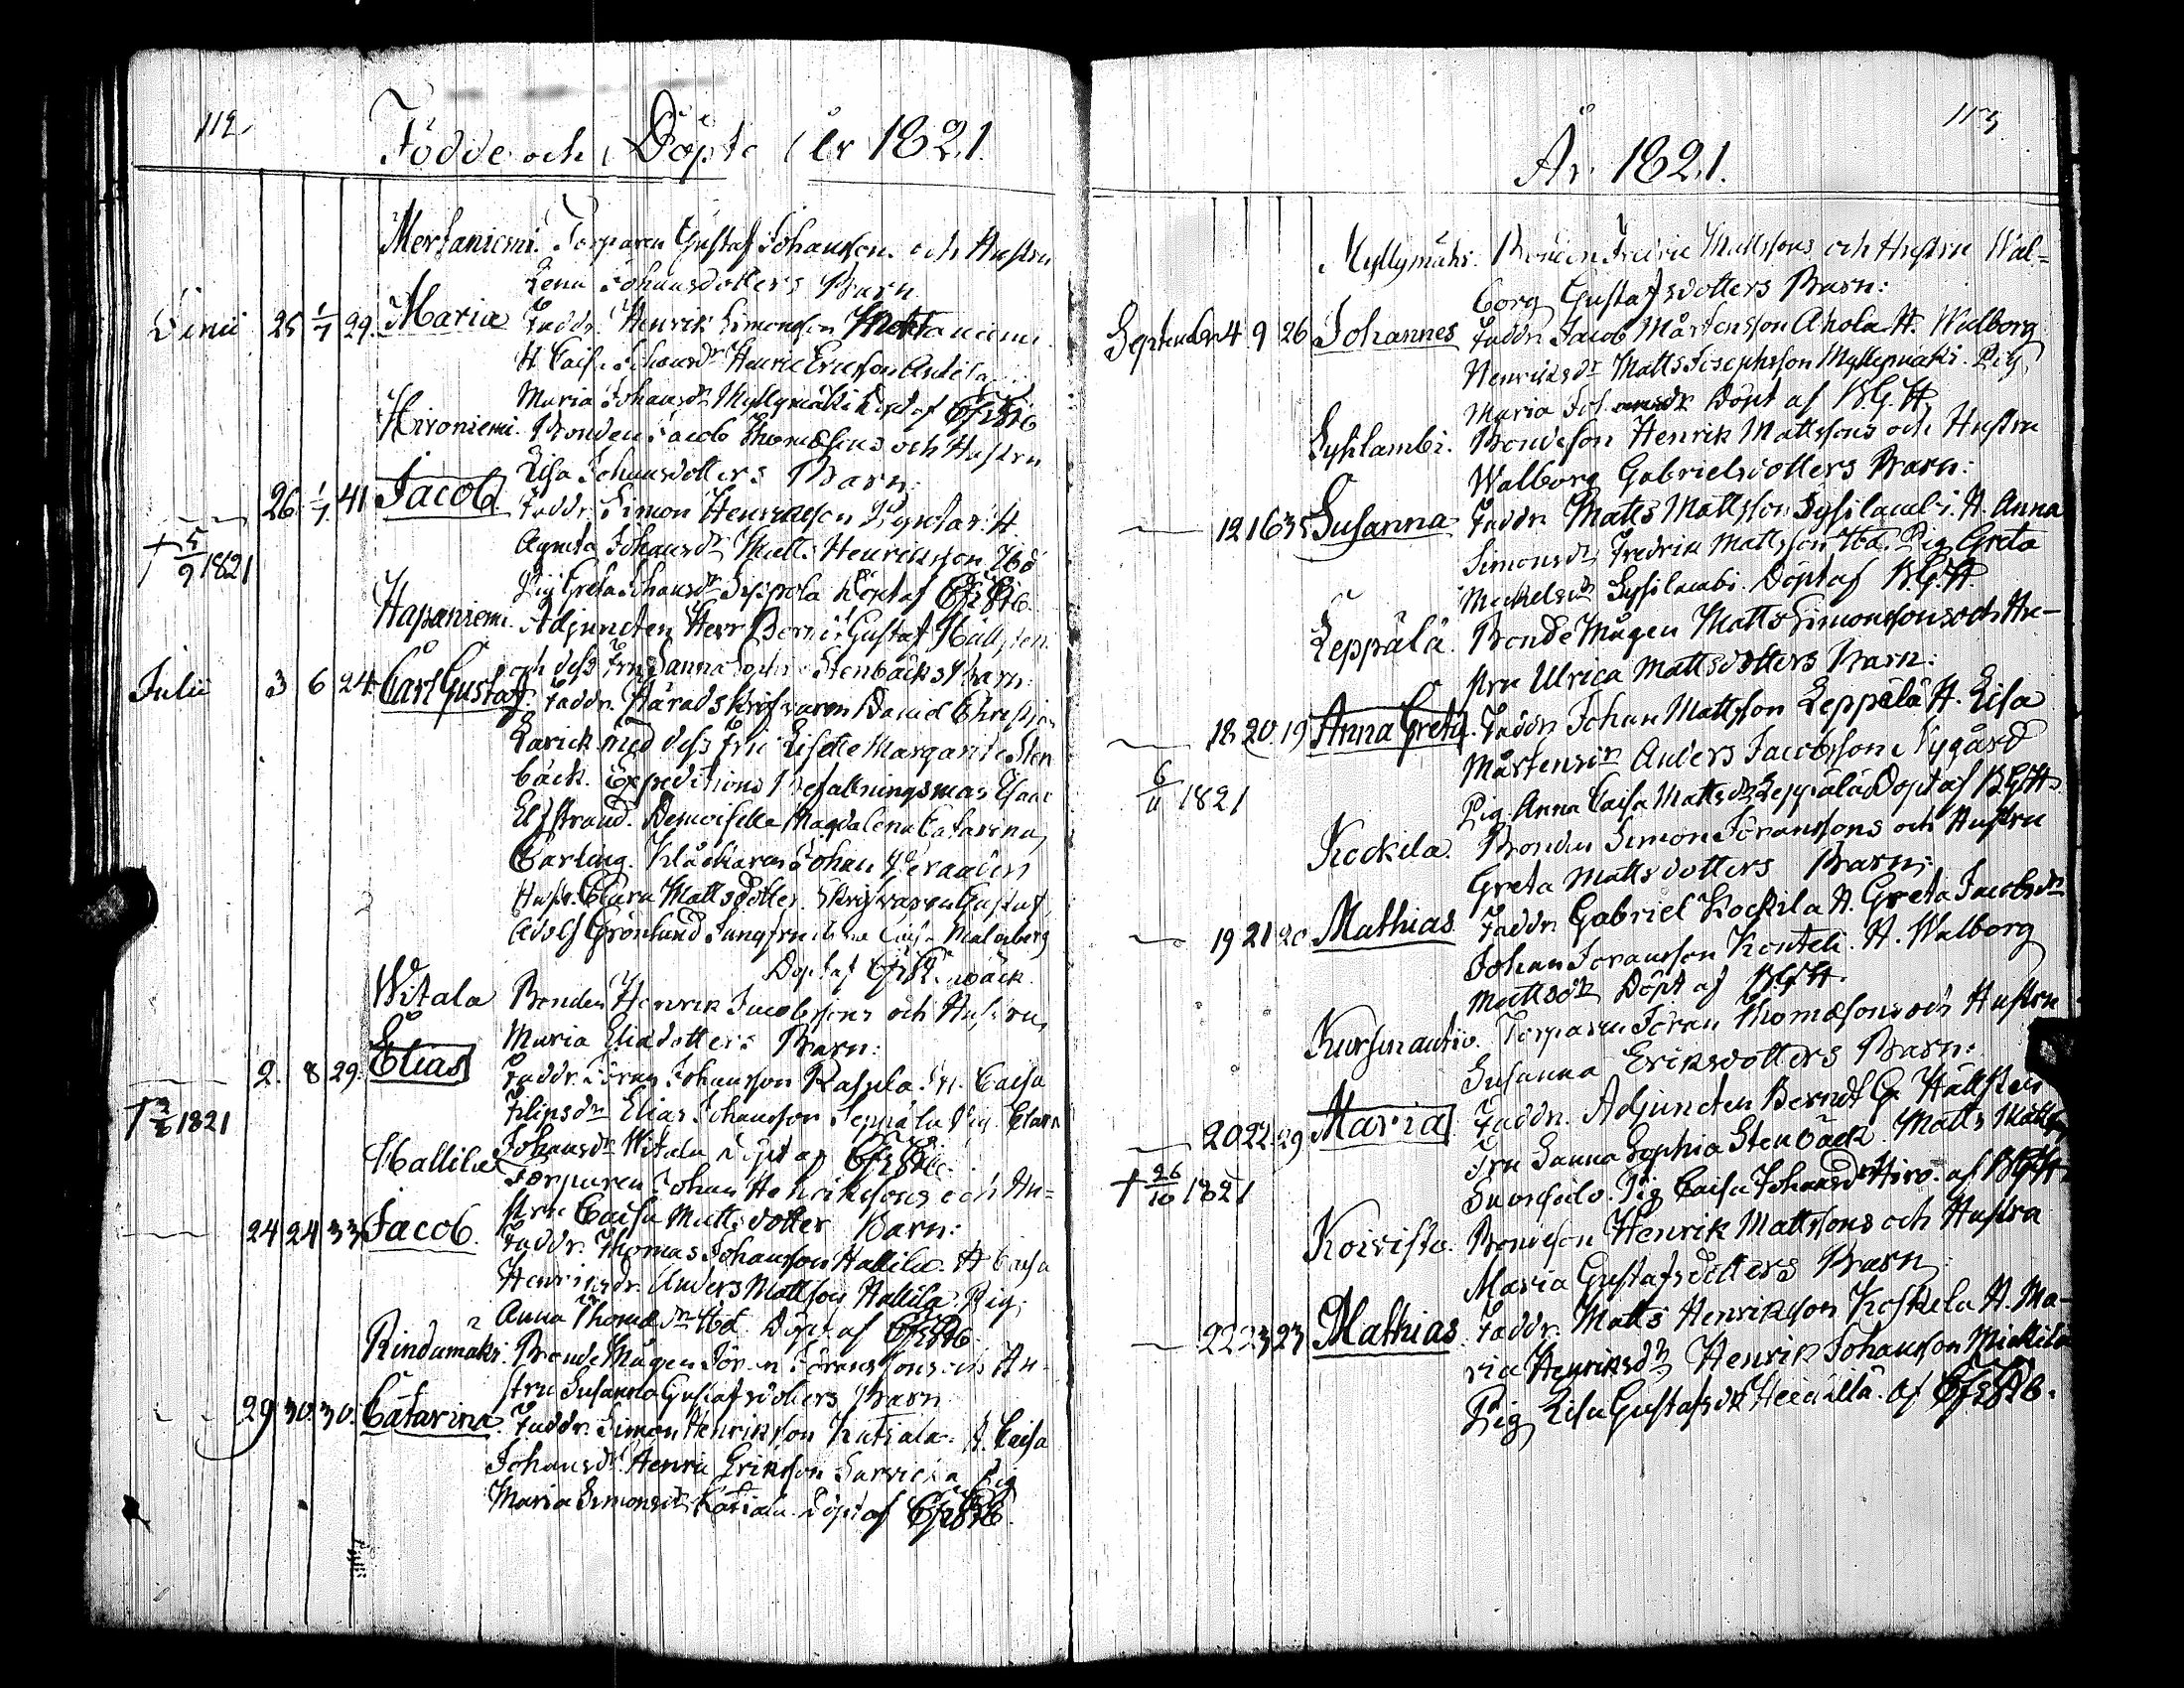 112.
Födde och Döpte År 1821.
Mertaniemi. Torparen Gustaf Johansson och Hustru
Lena Johansdotters Barn
Junii 25 1/7 29. Maria Faddr. Henrik Simonsson
H Caisa Johansdr Henric Ericsson Antila
Maria Johansdr Myllymäki Döpt af
Hironiemi. Bonden Jacob Thomæsons och Hustru
Lisa Johansdotters Barn:
26 1/7 41 Jacob Faddr. Simon Henricsson H
† 5/9 1821
Agneta Johansdr Matts Henriksson Ibd
Pig Greta Johansdr Döpt af
Hapaniemi. Adjuncten Herr Bernt Gustaf Hällsten
och dess Fru Sanna Stenbäcks Barn:
Julii 3 6 24 Carl Gustaf. Faddr. Häradsskrifvaren David Christian
Larick med dess Fru Lisette Margareta Sten
bäck. Expeditions Befallningsman Isaac
Elfstrand. Demoiselle Magdalena Catarina
Carling. Klåckaren Johan
Hustr. Clara Mattsdotter. Skrifvaren Gustaf
Adolf Grönlund Jungfru Caisa Malmberg
Döpt af
Witala Bonden Henrik Jacobssons och Hustru
Maria Eliædotters Barn:
2. 8 29. Elias Faddr. Jöran Johansson H. Caisa
† 1821
Filipsdr Elias Johansson Seppälä Pig. Clara
Johansdr Witala Döpt af
Hallila Torparen Johan Henrikssons och Hu=
stru Caisa Mattsdotter Barn:
24 24 33 Jacob. Faddr. Thomas Johansson Hallila. H Caisa
Henriksdr. Anders Mattsson Hallila. Pig
Anna Thomædr Ibd. Döpt af
Rindamäki. BondeMågen Jöran Jöranssons och Hu-
stru Susanna Gustafsdotters Barn
29 30. 30. Catarina. Faddr. Simon Henriksson Kutiala. H. Caisa
Johansdr. Henric Eriksson Pig
Maria Simonsdr Döpt af
113
År 1821.
Myllymäki. Bonden Fredric Mattssons och Hustru Wal=
borg Gustafsdotters Barn:
September 4 9 26 Johannes Faddr. Jacob Mårtensson Ahola H. Walborg
Henriksdr Matts Josephsson Myllymäki. Pig
Maria Johansdr Döpt af B.G.H
Syhlambi. Bondeson Henrik Mattssons och Hustru
Walborg Gabrielsdotters Barn:
12 16 35 Susanna Faddr. Matts Mattsson Sysilambi. H. Anna
Simonsdr Fredrik Mattsson Ibd. Pig Greta
Mickelsdr Sysilambi. Döpt af B.G.H
Leppälä. BondeMågen Matts Simonssons och Hu-
stru Ulrica Mattsdotters Barn:
18. 20. 19 Anna Greta. Faddr. Johan Mattsson Leppälä H. Lisa
6/11 1821
Mårtensdr Anders Jacobsson Nygård
Pig. Anna Caisa Mattsdr Leppälä Döpt af B.G.H
Kockila. Bonden Simon Jöranssons och Hustru
Greta Mattsdotters Barn:
19 21 20 Mathias Faddr. Gabriel Kockila H. Greta Jacobsdr
Johan Joransson Konteli. H. Walborg
Mattsdr Döpt af B.G.H.
Torparen Jöran Thomæsons och Hustru
Susanna Eriksdotters Barn:
20 22 29 Maria Faddr. Adjuncten Berndt G. Hällsten
† 26/10 1821
Fru Sanna Sophia Stenbäck. Matts
Pig Caisa Johansdr Hiro. af B.G.H
Koivisto. Bondeson Henrik Mattssons och Hustru
Maria Gustafsdotters Barn
22 23 23 Mathias Faddr. Matts Henriksson Koskela H. Ma-
ria Henriksdr Henrik Johansson Mickilä
Pig Lisa Gustafsdr Heickilä. af